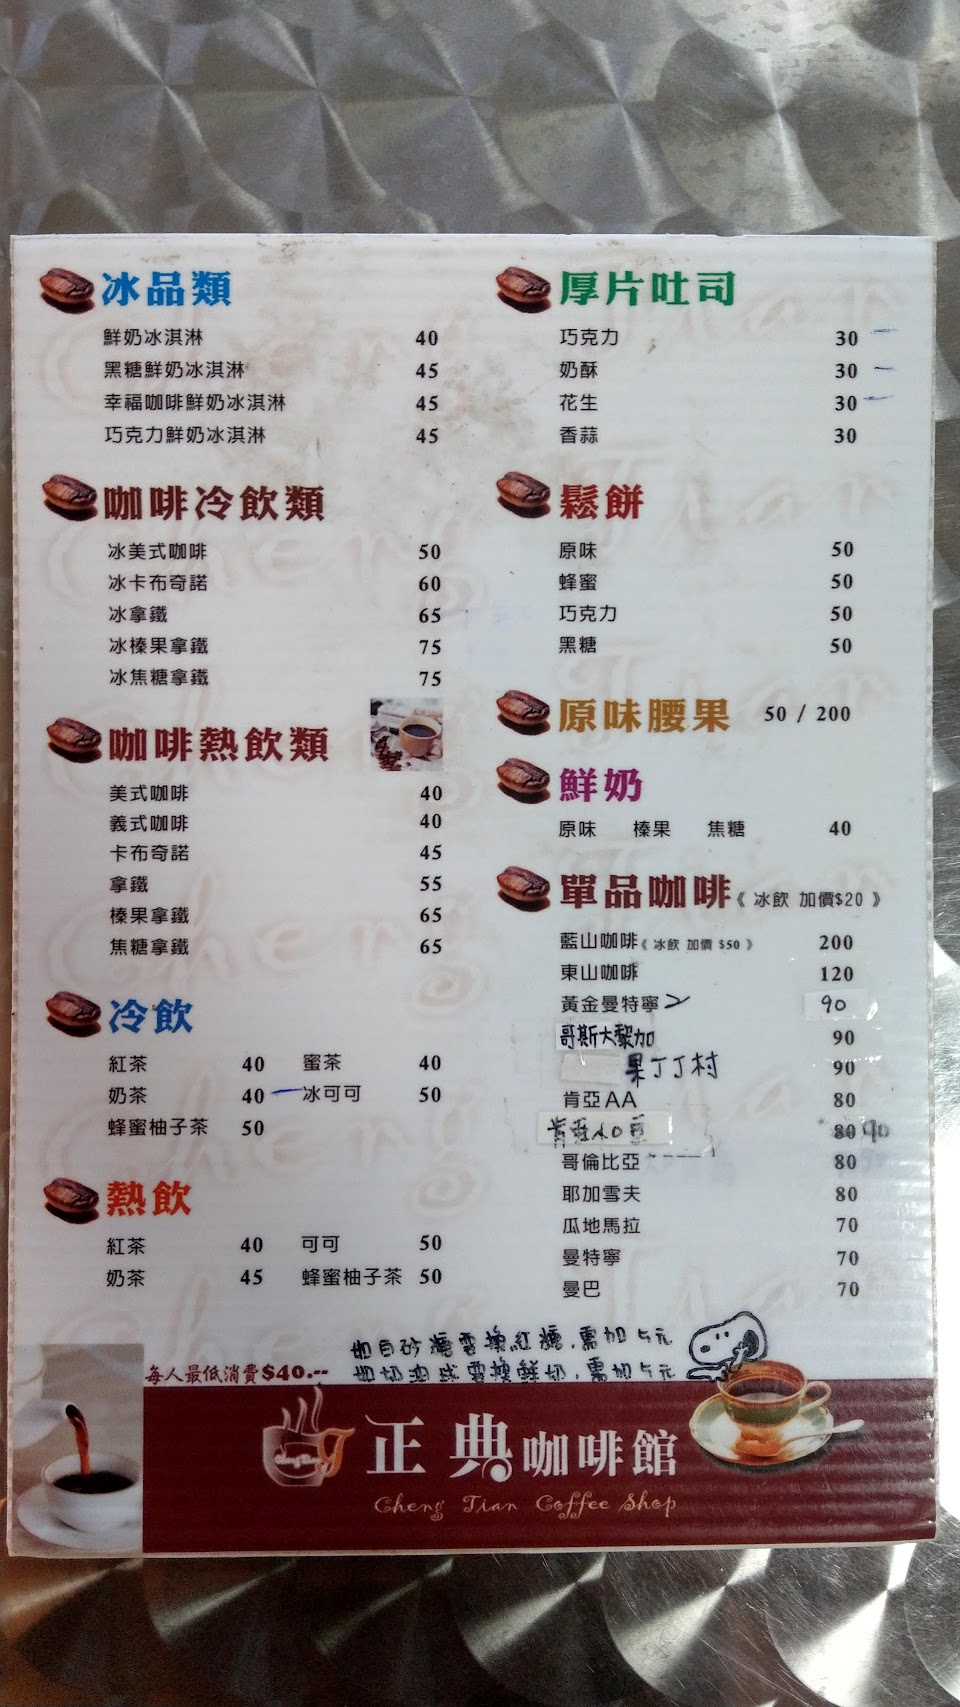 冰品類
鮮奶冰淇淋 40
黑糖鮮奶冰淇淋 45
幸福咖啡鮮奶冰淇淋 45
巧克力鮮奶冰淇淋 45
咖啡冷飲類
冰美式咖啡 50
冰卡布奇諾 60
冰拿鐵 65
冰榛果拿鐵 75
冰焦糖拿鐵 75
咖啡熱飲類
美式咖啡 40
義式咖啡 40
卡布奇諾 45
拿鐵 55
榛果拿鐵 65
焦糖拿鐵 65
冷飲
紅茶 40 蜜茶 40
奶茶 40 冰可可 50
蜂蜜柚子茶 50
熱飲
紅茶 40 可可 50
奶茶 45 蜂蜜柚子茶 50
厚片吐司
巧克力 30
奶酥 30
花生 30
香蒜 30
鬆餅
原味 50
蜂蜜 50
巧克力 50
黑糖 50
原味腰果 50 / 200
鮮奶
原味 榛果 焦糖 40
單品咖啡《 冰飲 加價$20 》
藍山咖啡《 冰飲 加價 $50 》 200
東山咖啡 120
黃金曼特寧 90
哥斯大黎加 90
果丁丁村 90
肯亞AA 80
肯亞 豆 80 90
哥倫比亞 80
耶加雪夫 80
瓜地馬拉 70
曼特寧 70
曼巴 70
如白砂糖要換紅糖，需加5元
如奶油球要換鮮奶，需加5元
每人最低消費$40.--
正典咖啡館
Cheng Tian Coffee Shop